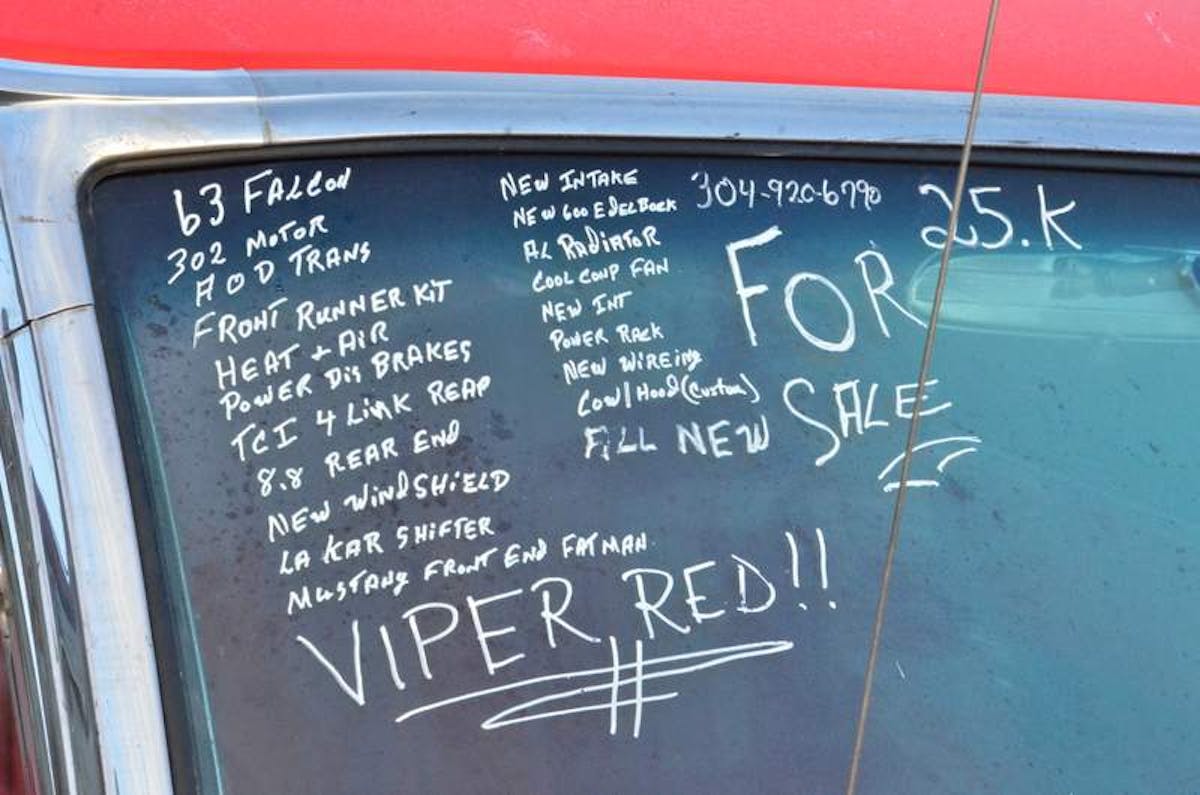 63 FALCON
302 MOTOR
AOD TRANS
FRONT RUNNER KIT
HEAT + AIR
POWER DIS BRAKES
TCI 4 LINK REAR
8.8 REAR END
NEW WINDSHIELD
LA KAR SHIFTER
MUSTANG FRONT END FATMAN
VIPER RED!!
NEW INTAKE
NEW 600 EDELBOCK
AL RADIATOR
COOL COMP FAN
NEW INT
POWER RACK
NEW WIREING
Cowl Hood (Custom)
ALL NEW
304-920-6790
25.K
FOR
SALE